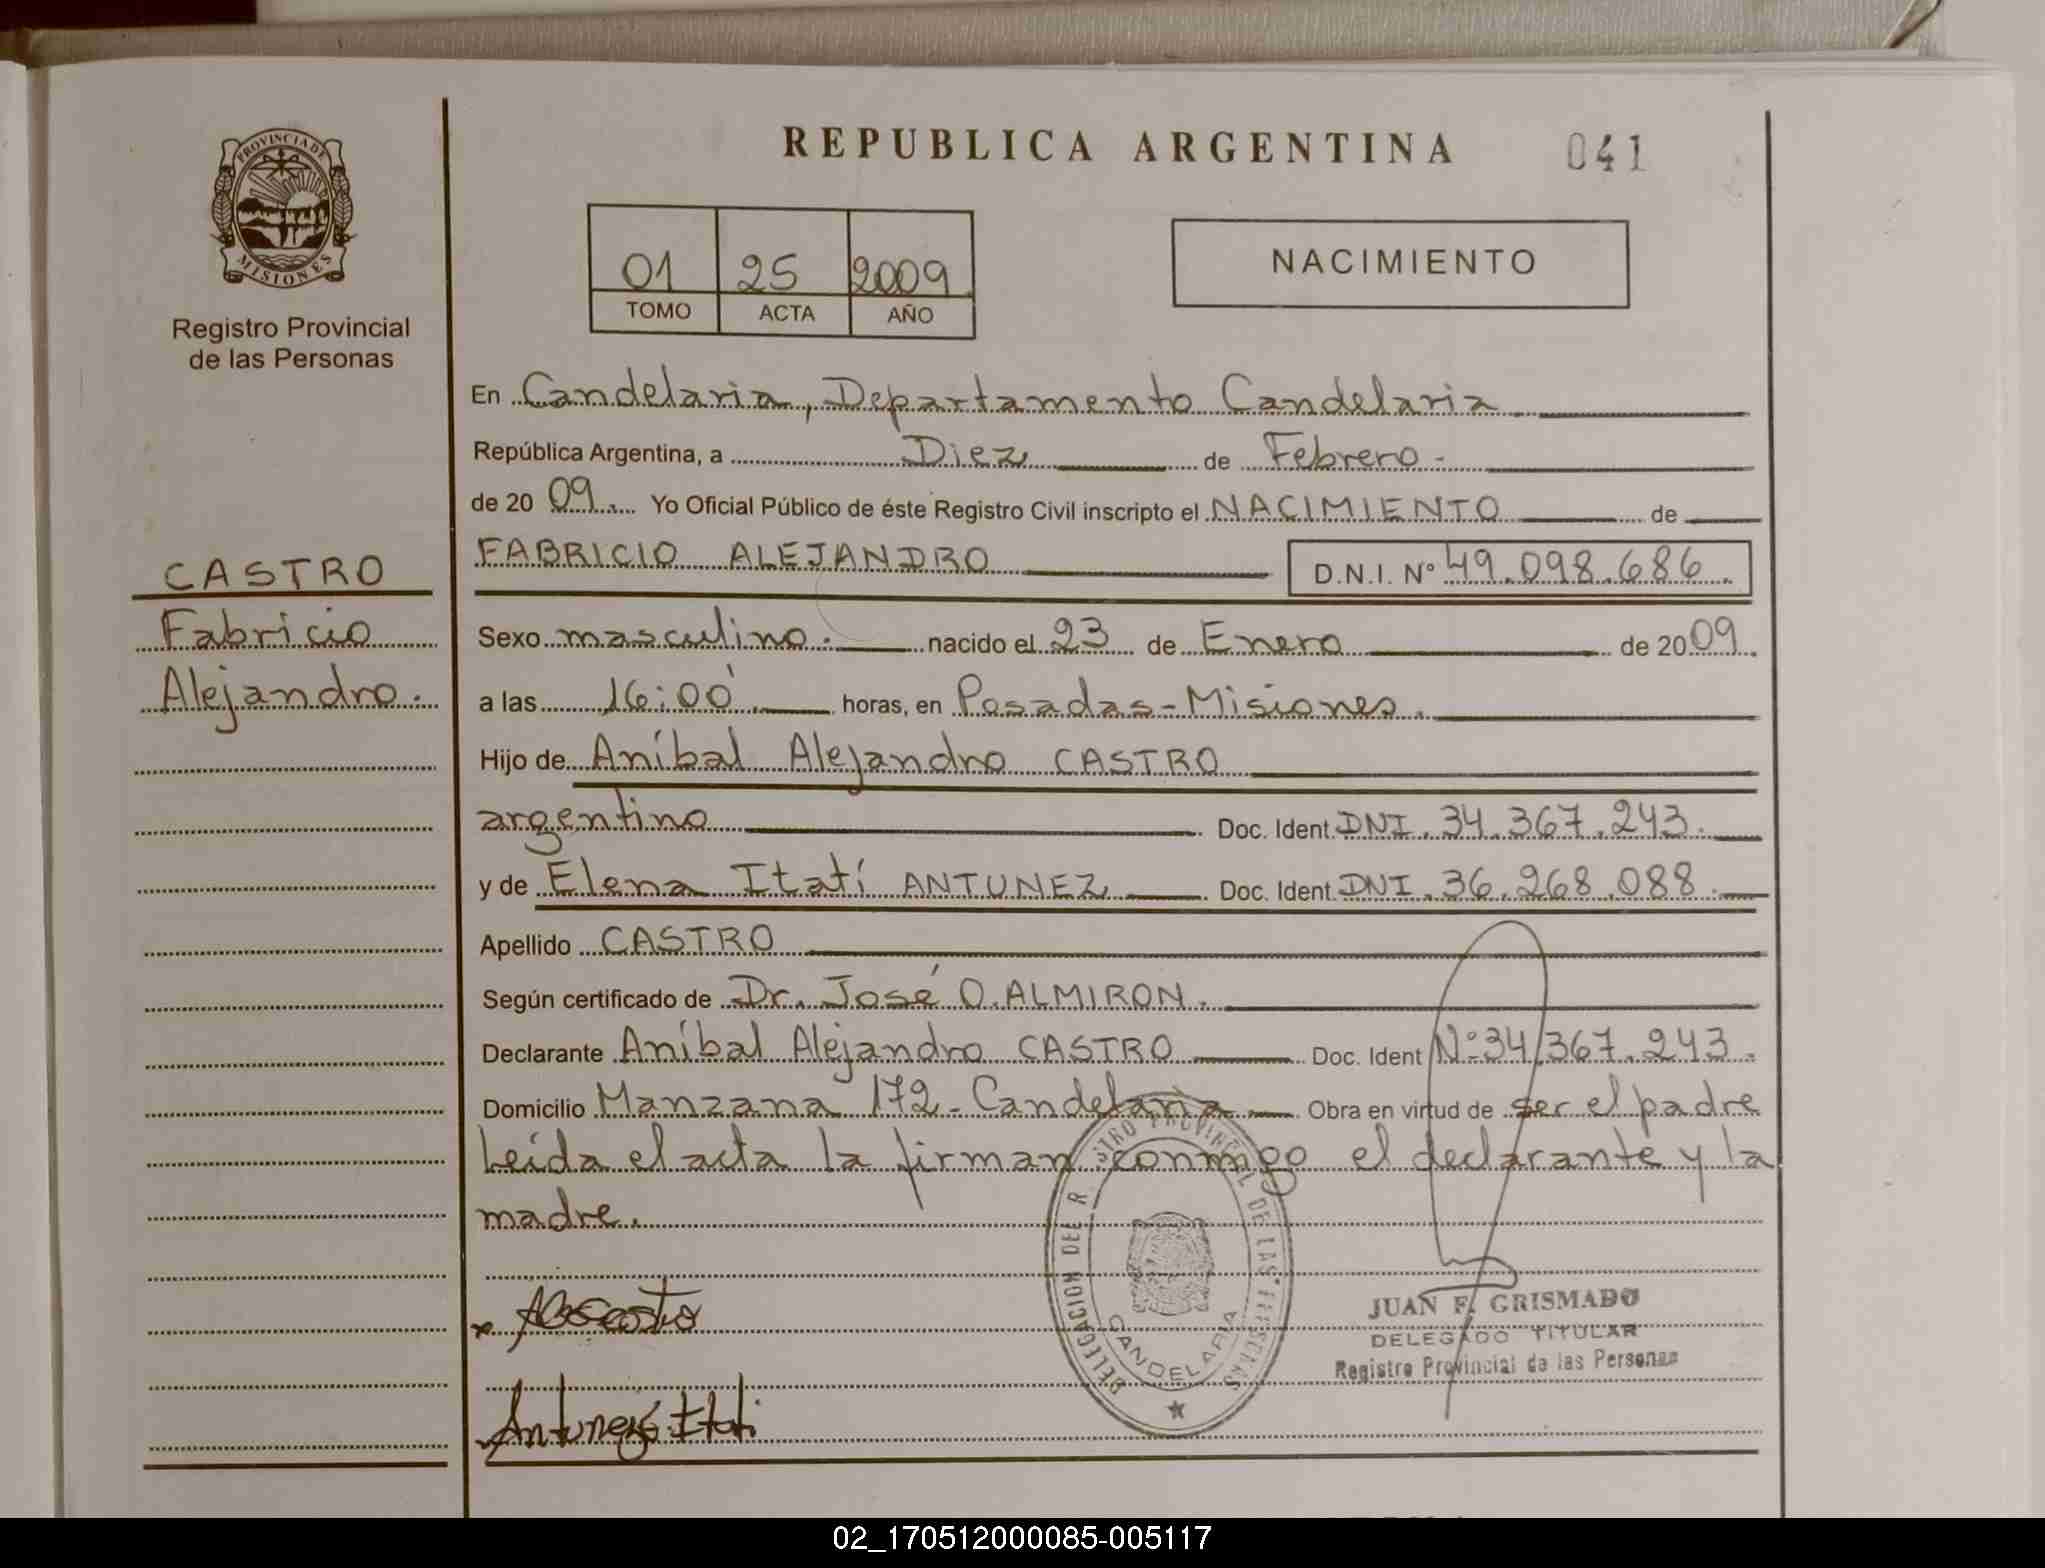 REPUBLICA ARGENTINA
041
PROVINCIA DE
MISIONES
Registro Provincial
de las Personas
01 25 2009
TOMO ACTA AÑO
NACIMIENTO
En Candelaria, Departamento Candelaria
República Argentina, a Diez de Febrero -
de 20 09. Yo Oficial Público de éste Registro Civil inscripto el NACIMIENTO de
FABRICIO ALEJANDRO D.N.I. Nº 49.098.686.
CASTRO
Fabricio
Alejandro.
Sexo masculino. nacido el 23 de Enero de 20 09.
a las 16:00 horas, en Posadas - Misiones.
Hijo de Aníbal Alejandro CASTRO
argentino Doc. Ident. DNI. 34.367.243.
y de Elena Itatí ANTUNEZ Doc. Ident. DNI. 36.268.088.
Apellido CASTRO
Según certificado de Dr. José O. ALMIRON.
Declarante Aníbal Alejandro CASTRO Doc. Ident Nº 34.367.243.
Domicilio Manzana 172 - Candelaria Obra en virtud de ser el padre
Leída el acta la firman conmigo el declarante y la
madre.
DELEGACION DEL R STRO PROVINCIAL DE LAS PERSONAS
CANDELARIA
JUAN F. GRISMADO
DELEGADO TITULAR
Registro Provincial de las Personas
Antunez Itati
02_170512000085-005117